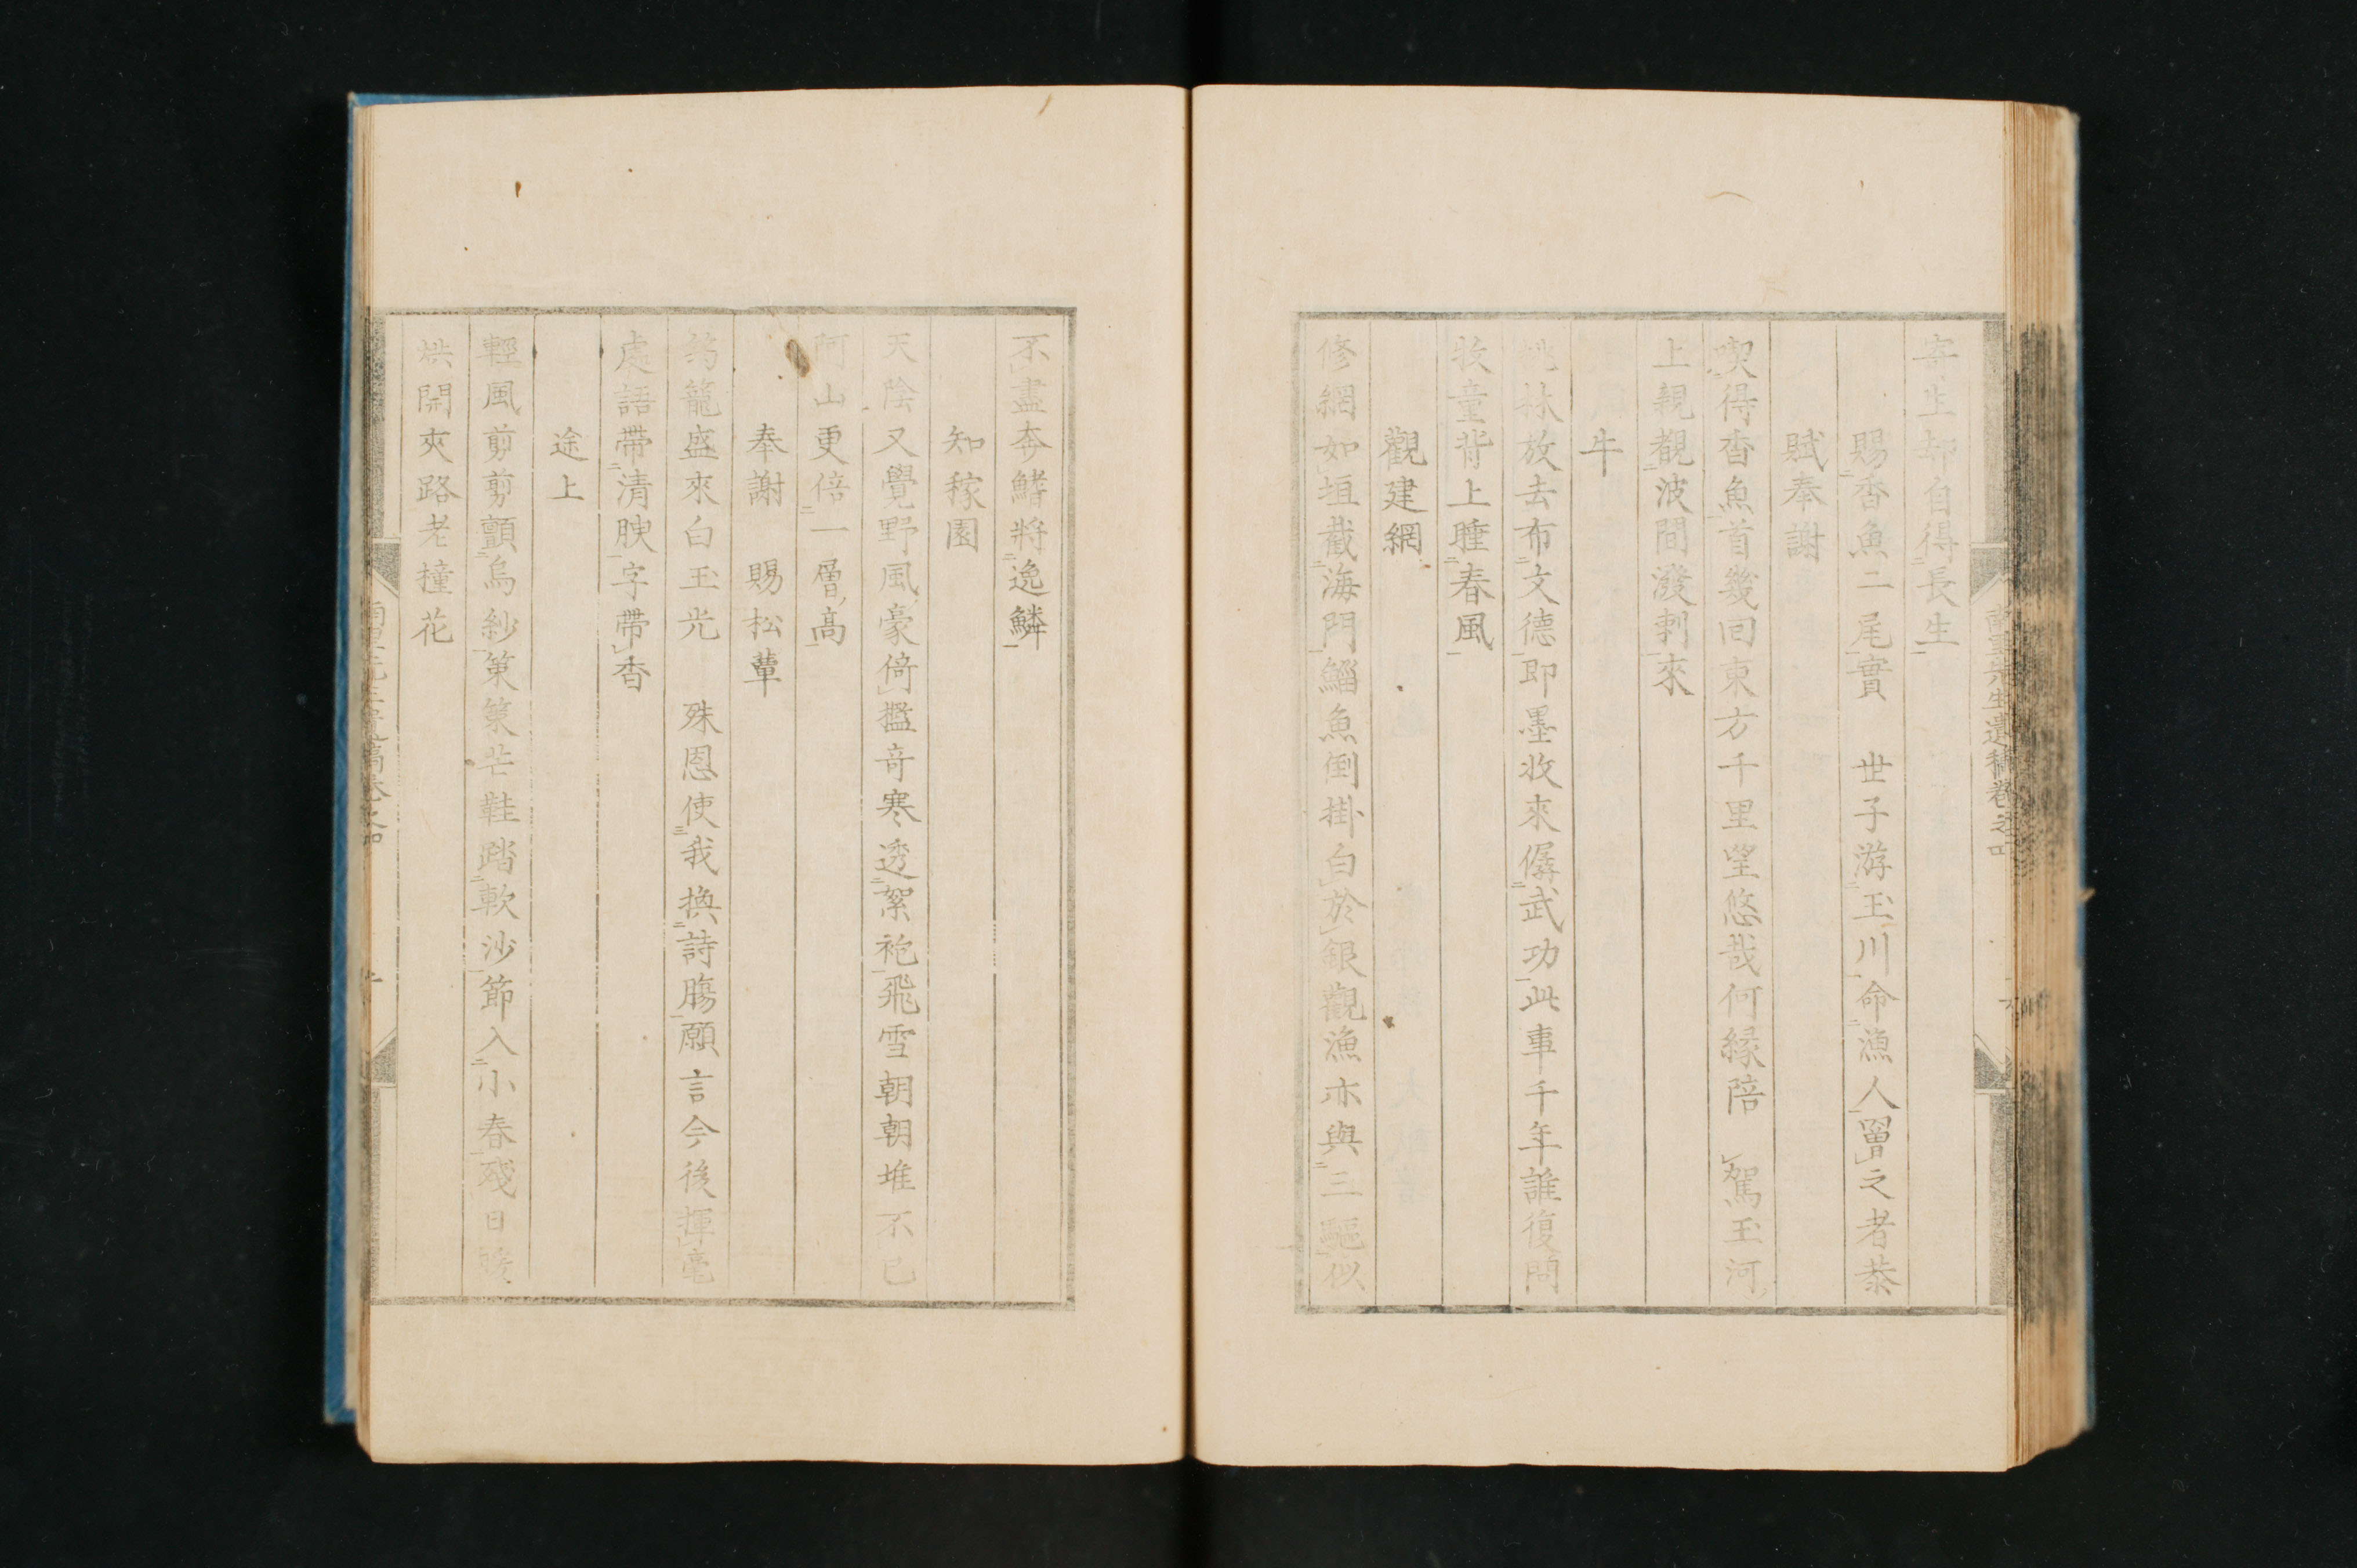 寄生却自得長生
賜香魚二尾實　世子游玉川命漁人罾之者恭
賦奉謝
喫得香魚首幾回東方千里望悠哉何縁陪　駕玉河
上親覩波間潑剌來
牛
桃林放去布文德即墨收來偱武功此事千年誰復問
牧童背上睡春風
觀建網
修網如垣截海門鯔魚倒掛白於銀觀漁亦與三驅似
不盡奔鰭將逸鱗
知稼園
天陰又覺野風豪倚檻奇寒透絮袍飛雪朝朝堆不已
阿山更倍一層高
奉謝　賜松蕈
筠籠盛來白玉光　殊恩使我換詩腸願言今後揮毫
處語帶清腴字帶香
途上
輕風剪剪顫烏紗策策芒鞋踏軟沙節入小春殘日暖
烘開夾路老撞花
先生遺稿卷之四